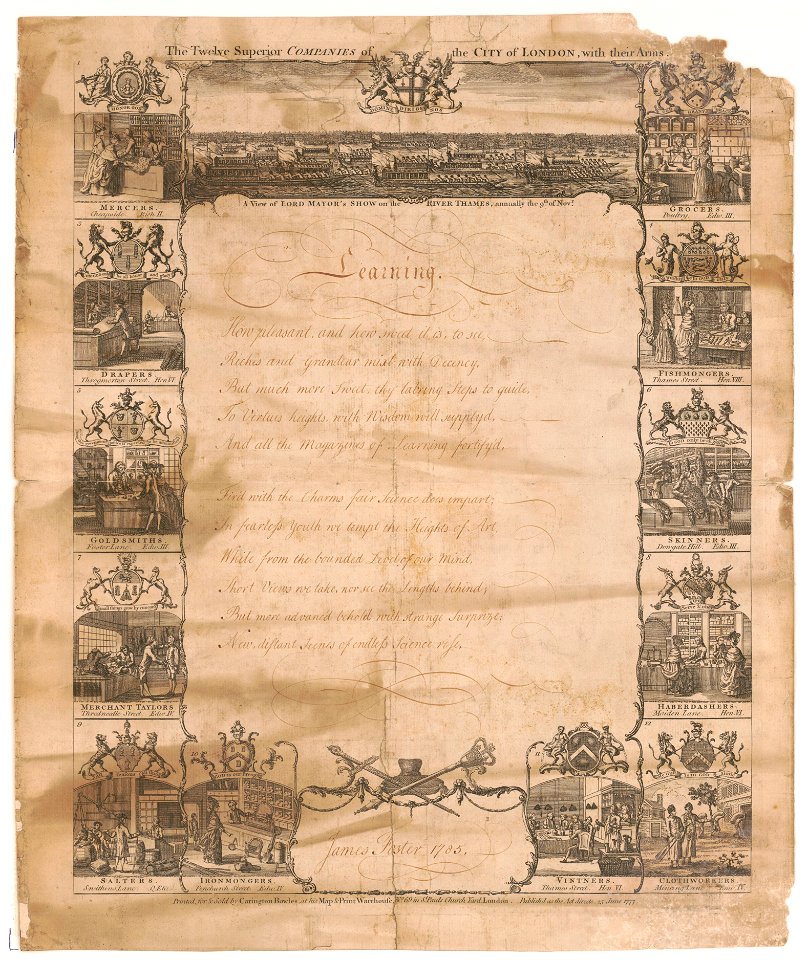 The Twelve Superior COMPANIES of the CITY of LONDON, with their Arms.
DOMINE DIRIGE NOS
A View of LORD MAYOR'S SHOW on the RIVER THAMES, annually the 9th of Novr.
1
HONOR DEO
MERCERS.
Cheapside. Rich. II.
GROCERS.
Poultry. Edw. III.
3
DRAPERS
Throgmorton Street. Hen. VI.
4
FISHMONGERS.
Thames Street. Hen. VIII.
5
GOLDSMITHS.
Foster Lane. Edw. III.
6
SKINNERS.
Dowgate Hill. Edw. III.
7
MERCHANT TAYLORS
Threadneedle Street. Edw. IV.
8
HABERDASHERS.
Maiden Lane. Hen. VI.
9
SALTERS.
Swithens Lane. Q. Eliz.
10
IRONMONGERS.
Fenchurch Street. Edw. IV.
VINTNERS.
Thames Street. Hen. VI.
12
CLOTHWORKERS.
Mincing Lane.
Learning.
How pleasant, and how sweet it is, to see,
Riches and Grandeur mixt with Decency,
But much more Sweet, thy Steps to guide,
To Vertues heights, with Wisdom well supply'd,
And all the Magazines of Learning fortify'd,
Fir'd with the Charms fair Science does impart;
In fearless Youth we tempt the Heights of Art,
While from the bounded Level of our Mind,
Short Views we take, nor see the Lengths behind;
But more advanc'd behold with strange Surprize;
New, distant Scenes of endless Science rise.
James Foster 1785.
Printed for & Sold by Carington Bowles, at his Map & Print Warehouse, No. 69 in St. Pauls Church Yard London. Publish'd as the Act directs, 25 June 1777